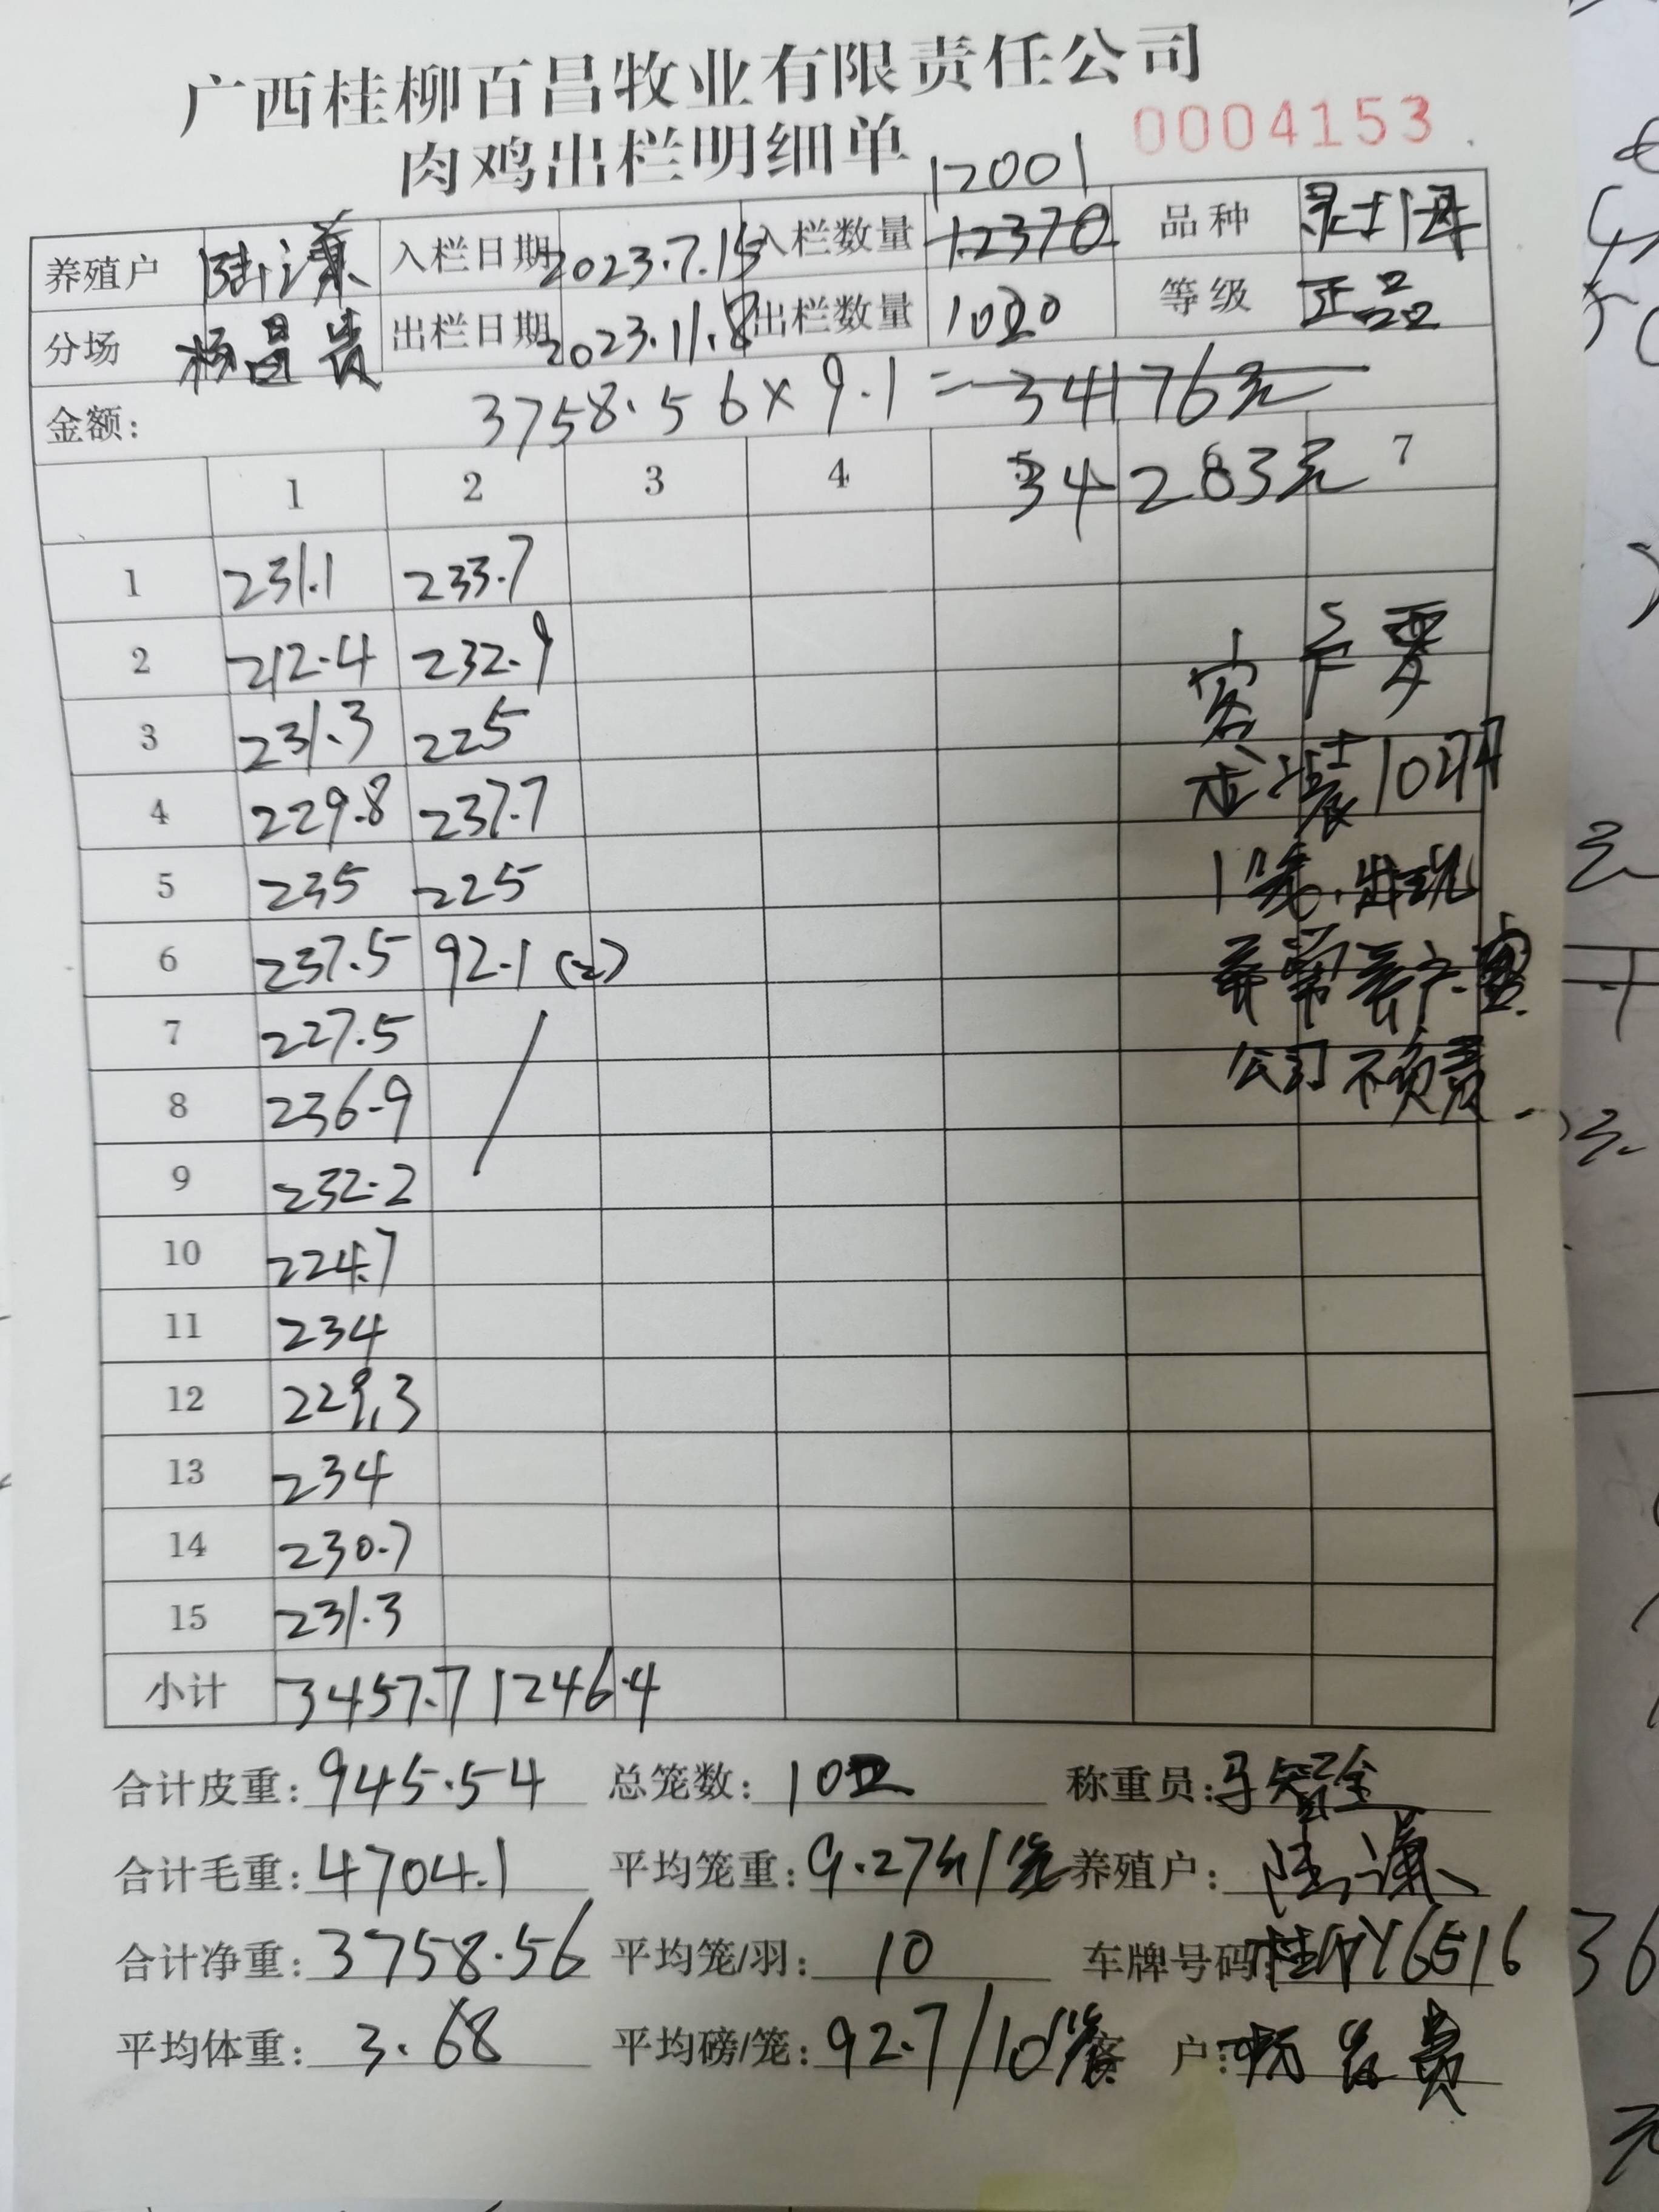 广西桂柳百昌牧业有限责任公司
肉鸡出栏明细单 0004153
12001
养殖户 陆谦 入栏日期 2023.7.15 入栏数量 12370 品种 土
分场 杨昌贵 出栏日期 2023.11.8 出栏数量 1020 等级 正品
金额: 3758.56×9.1=34176元
34283元
1 2 3 4 5 6 7
1 231.1 233.7
2 212.4 232.9
3 231.3 225
4 229.8 237.7
5 235 225
6 237.5 92.1 (2)
7 227.5
8 236.9
9 232.2
10 224.7
11 234
12 229.3
13 234
14 230.7
15 231.3
小计 3457.7 1246.4
客户要
求装10只
1笼.出现
异常客户
公司不负责
合计皮重: 945.54 总笼数: 102 称重员: 马智全
合计毛重: 4704.1 平均笼重: 9.27斤/笼 养殖户: 陆谦
合计净重: 3758.56 平均笼/羽: 10 车牌号码: 桂 Y6516
平均体重: 3.68 平均磅/笼: 92.7/10笼 客户: 杨昌贵